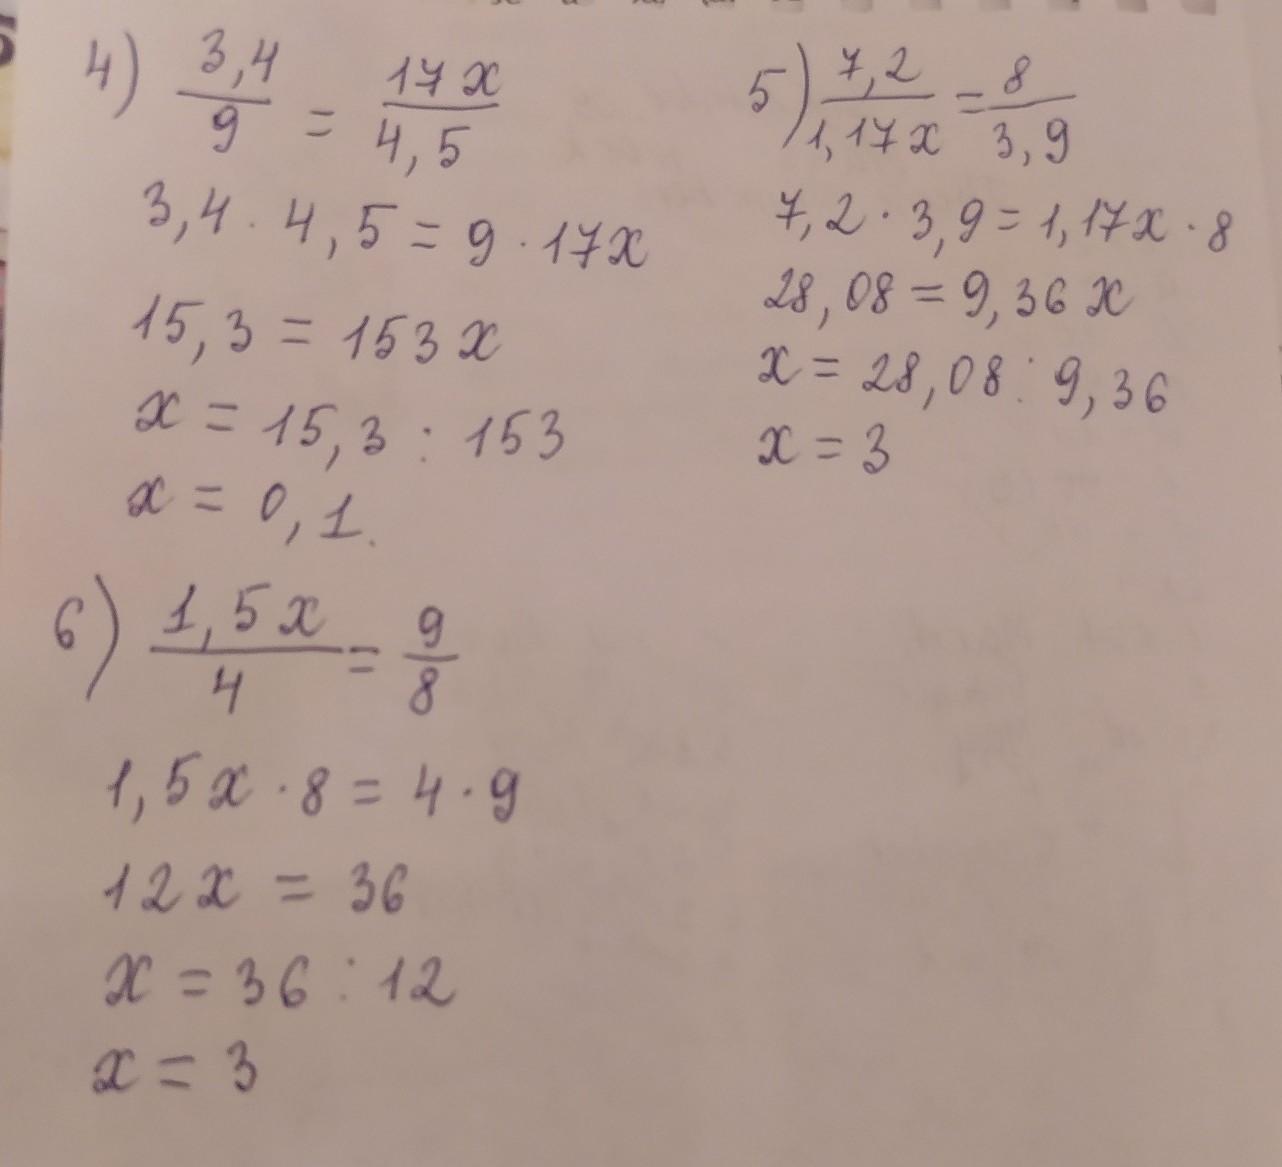 4) 3,4/9 = 17x/4,5
3,4 · 4,5 = 9 · 17x
15,3 = 153x
x = 15,3 : 153
x = 0,1.
5) 7,2/1,17x = 8/3,9
7,2 · 3,9 = 1,17x · 8
28,08 = 9,36x
x = 28,08 : 9,36
x = 3
6) 1,5x/4 = 9/8
1,5x · 8 = 4 · 9
12x = 36
x = 36 : 12
x = 3